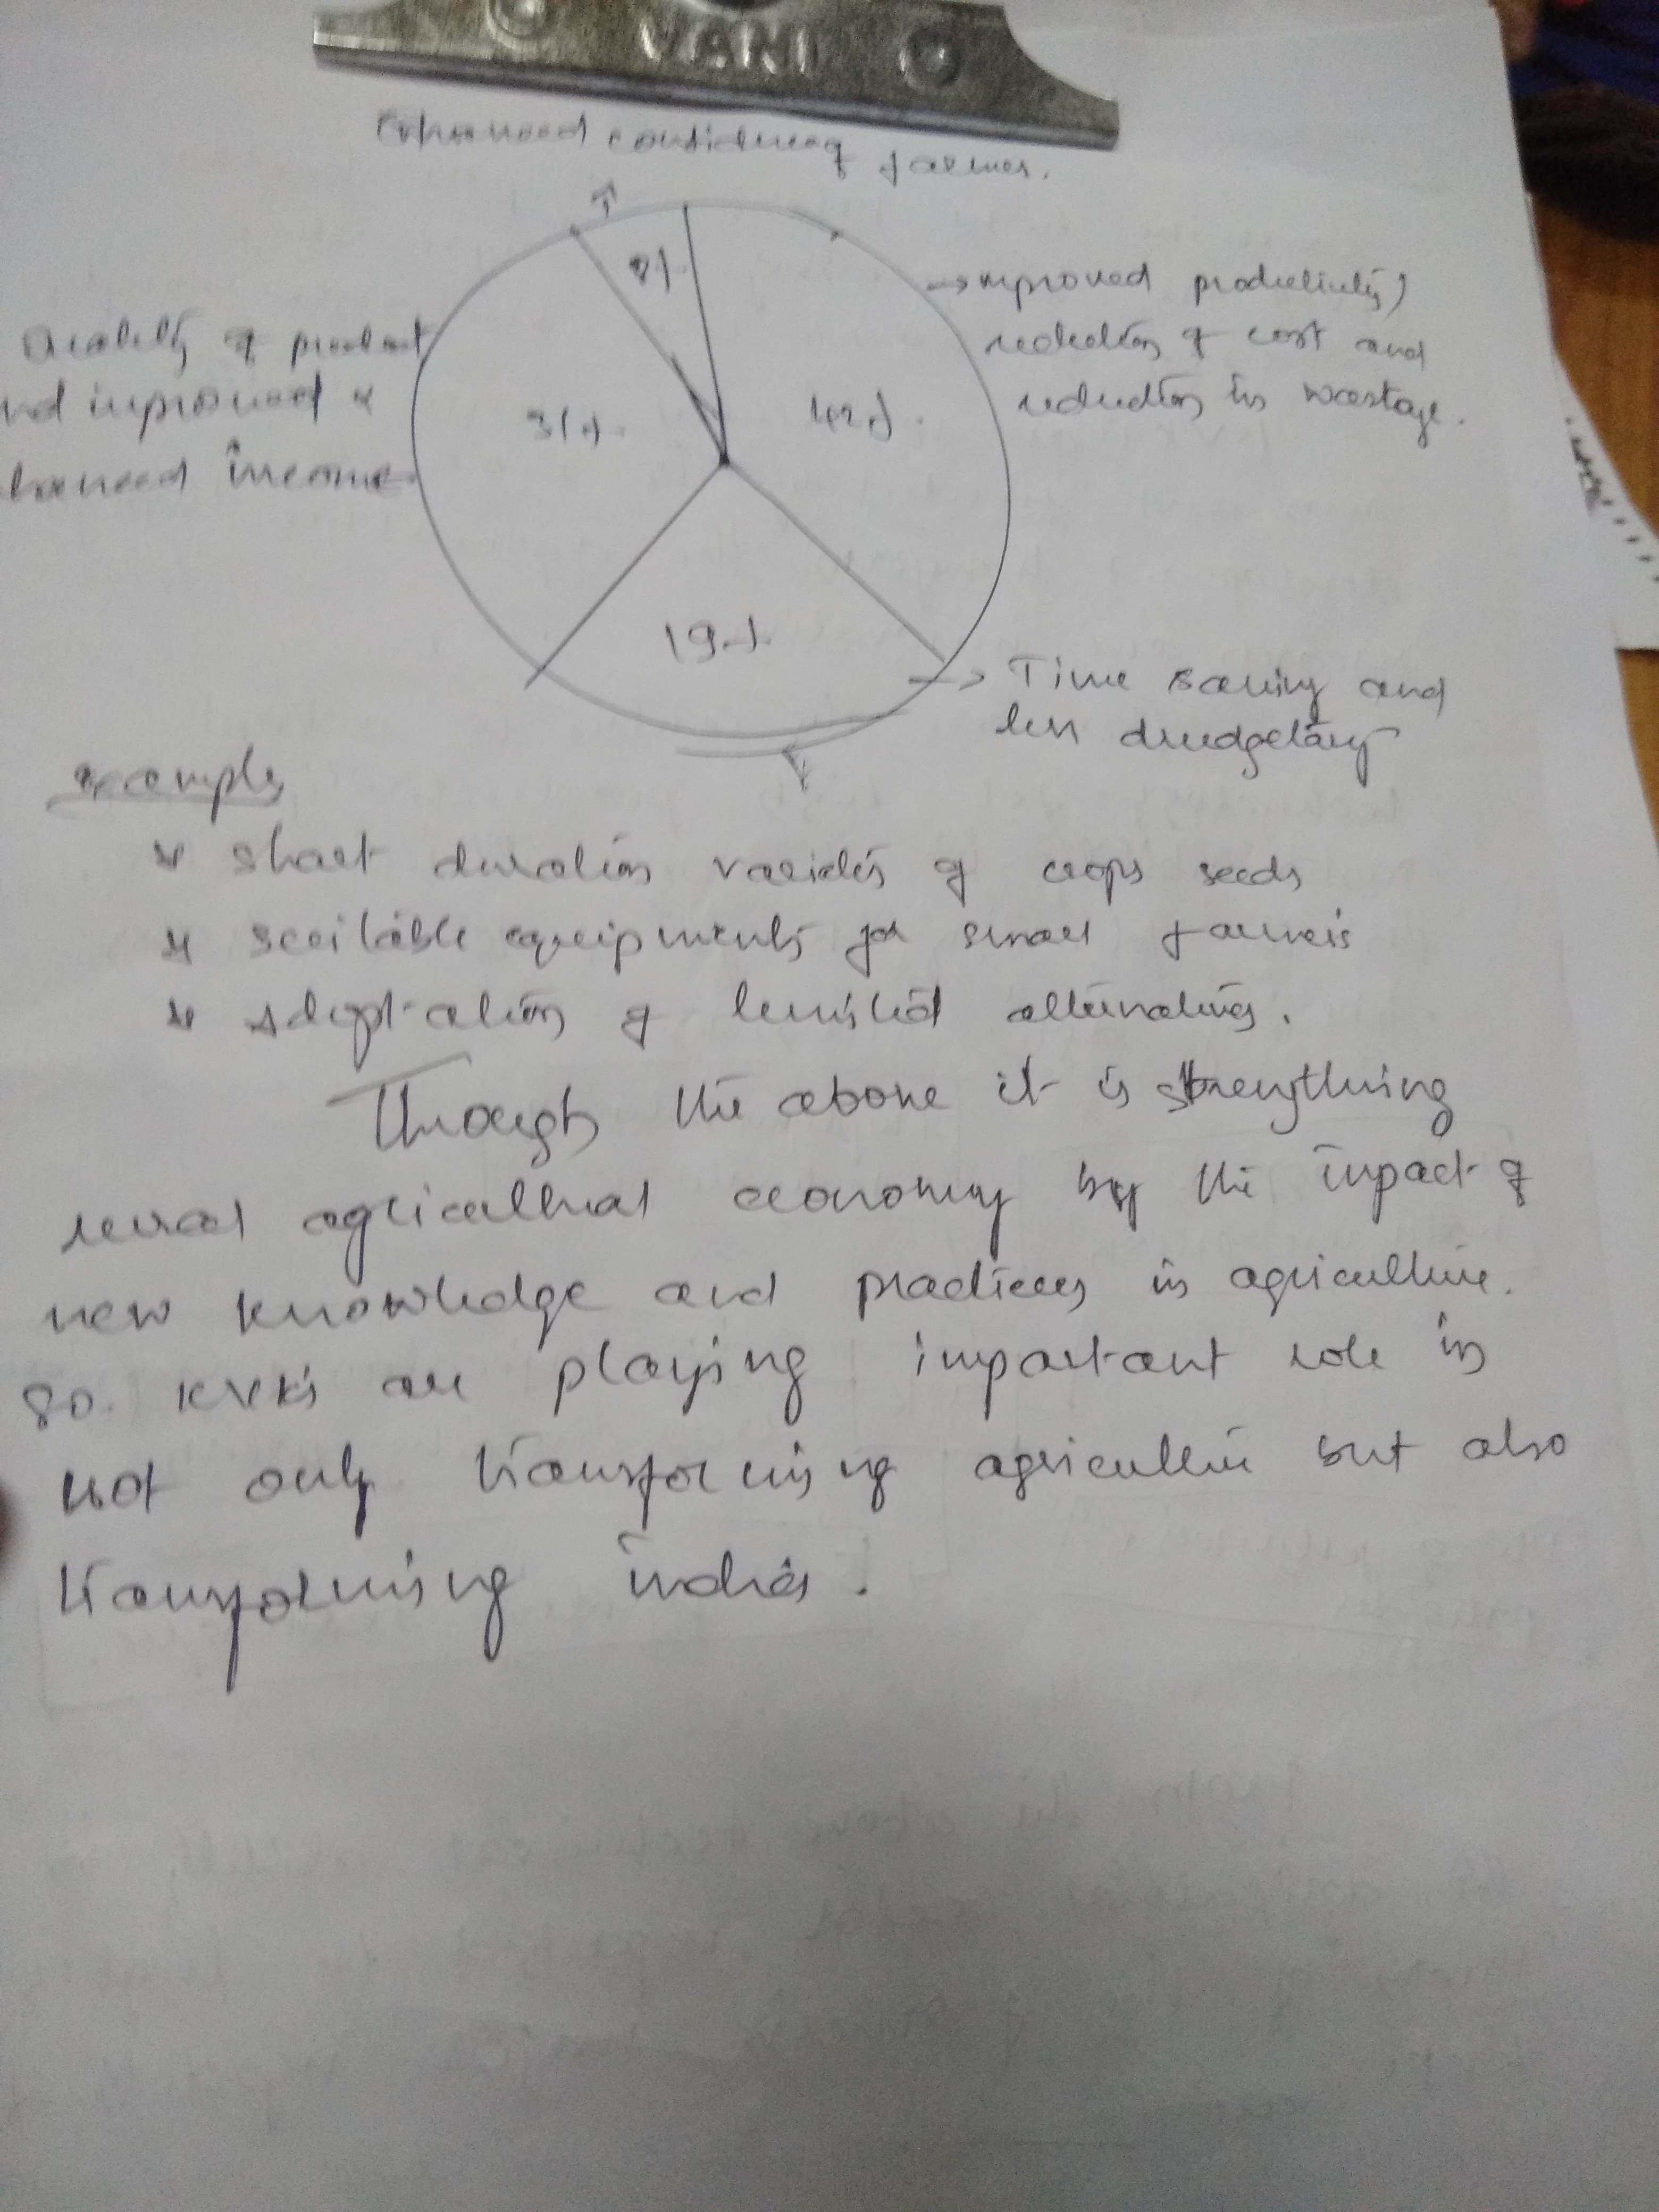 VANI
Enhanced confidence of farmer.
8%
→ improved productivity,
reduction of cost and
reduction in wastage.
Quality of product
and improved &
hanced income
31%.
42%.
19%.
→ Time saving and
less drudgetary
example
* short duration varities of crops seeds
* suitable equipments for small farmers
* Adoptation of alternatives.
Through the above it is strengthing
rural agricultural economy by the impact of
new knowledge and practices in agriculture.
so. KVK's are playing important role in
not only transforming agriculture but also
transforming india.